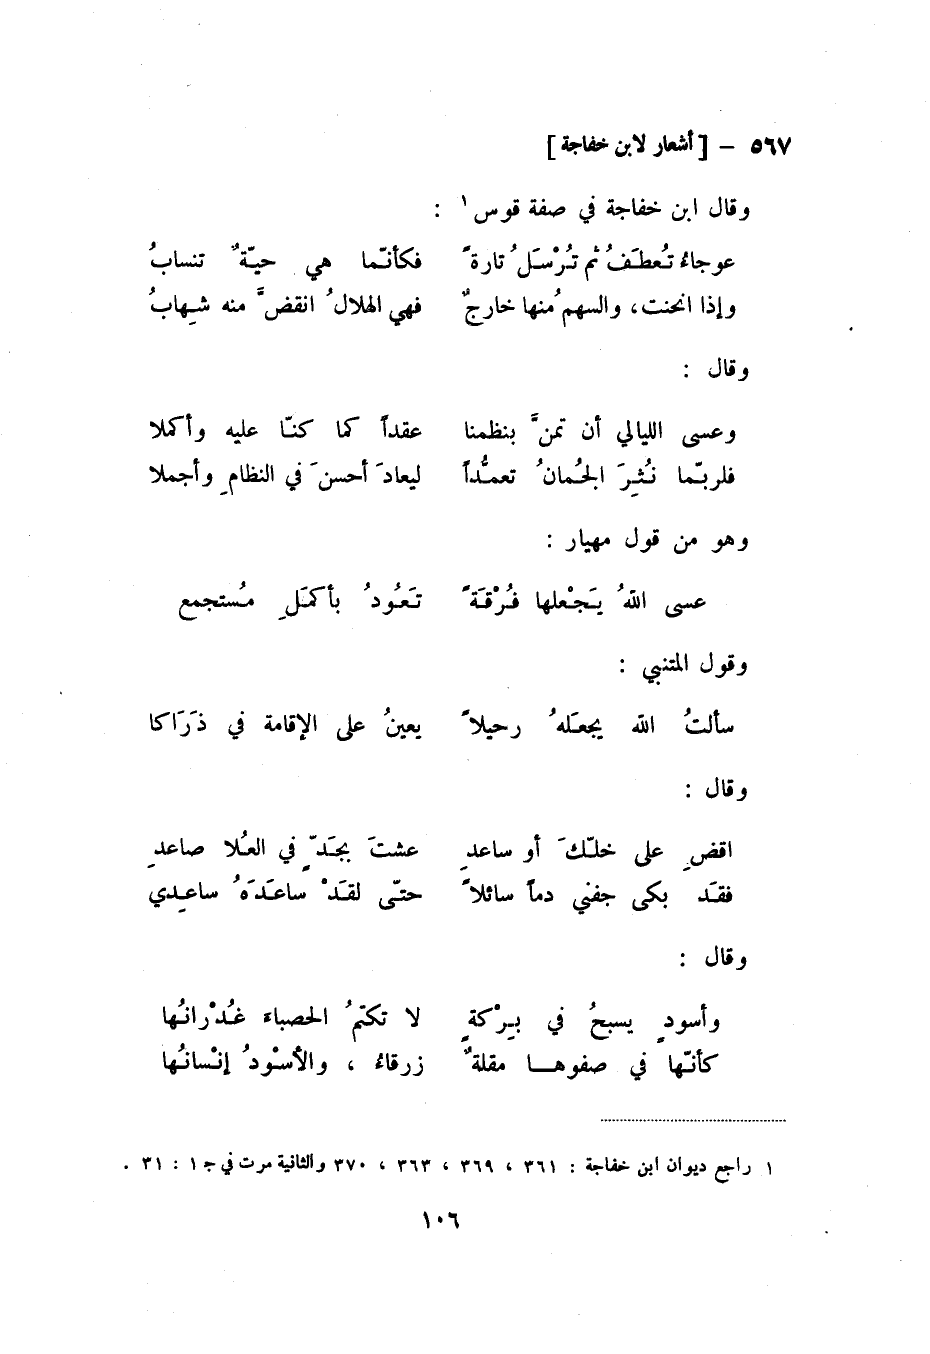 ٥٦٧ - [ أشعار لابن خفاجة ]
وقال ابن خفاجة في صفة قوس ١ :
عوجاءُ تُعطَفُ ثم تُرْسَلُ تارةً فكأنّما هي حيّةٌ تنسابُ
وإذا انحنت، والسهمُ منها خارجٌ فهي الهلالُ انقضَّ منه شِهابُ
وقال :
وعسى الليالي أن تمنَّ بنظمنا عقداً كما كنّا عليه وأكملا
فلربّما نُثِرَ الجُمانُ تعمُّداً ليعادَ أحسنَ في النظامِ وأجملا
وهو من قول مهيار :
عسى اللهُ يَجْعلها فُرْقَةً تَعُودُ بأكمَلِ مُستجمع
وقول المتنبي :
سألتُ الله يجعَلهُ رحيلاً يعينُ على الإقامة في ذَرَاكا
وقال :
اقضِ على خلّكَ أو ساعدِ عشتَ بجَدٍّ في العُلا صاعدِ
فقَد بكى جفني دماً سائلاً حتّى لقَدْ ساعَدَهُ ساعِدي
وقال :
وأسودٍ يسبحُ في بِرْكةٍ لا تكتمُ الحصباءَ غُدْرانُها
كأنّها في صفوهـا مقلةٌ زرقاءُ ، والأسْودُ إنْسانُها
١ راجع ديوان ابن خفاجة : ٣٦١ ، ٣٦٩ ، ٣٦٣ ، ٣٧٠ والثانية مرت في ج ١ : ٣١ .
١٠٦